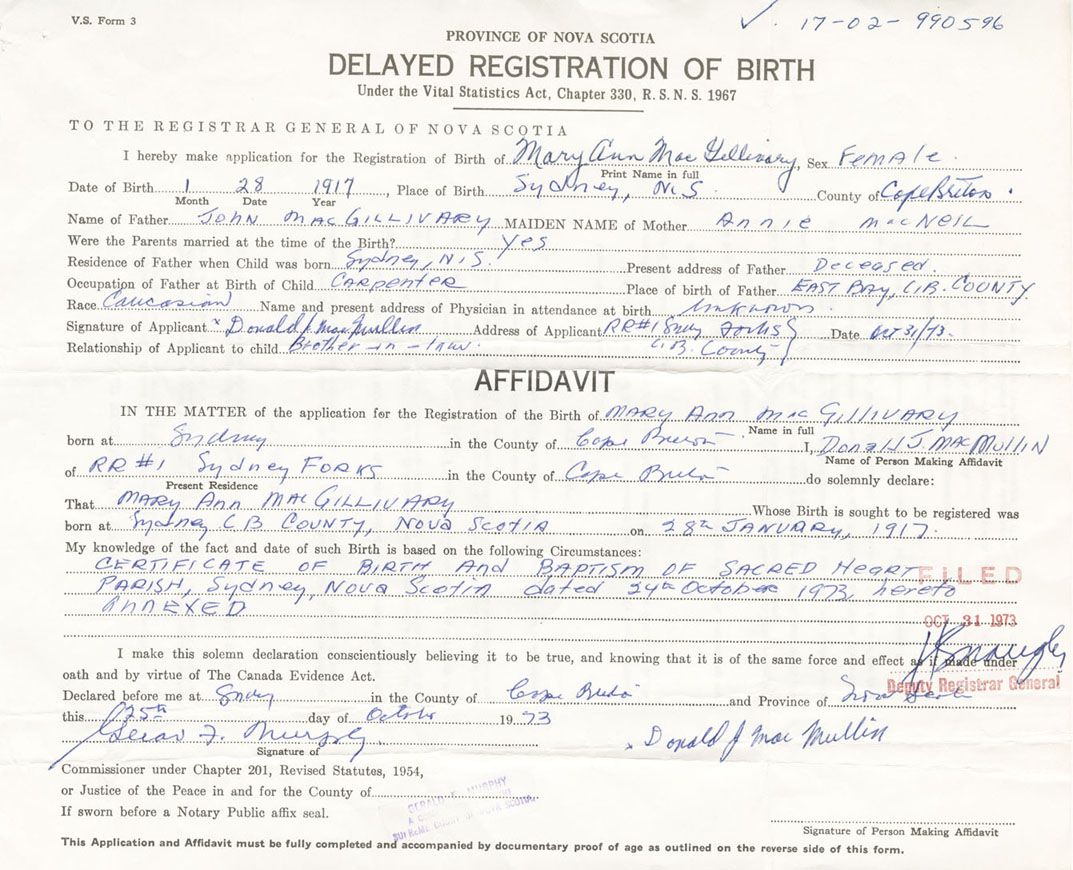 V.S. Form 3
17-02-990596
PROVINCE OF NOVA SCOTIA
DELAYED REGISTRATION OF BIRTH
Under the Vital Statistics Act, Chapter 330, R.S.N.S. 1967
TO THE REGISTRAR GENERAL OF NOVA SCOTIA
I hereby make application for the Registration of Birth of Mary Ann Mac Gillivary, Sex Female.
Print Name in full
Date of Birth 1 28 1917, Place of Birth Sydney, N.S. County of Cape Breton.
Month Date Year
Name of Father JOHN MACGILLIVARY MAIDEN NAME of Mother Annie MacNEIL
Were the Parents married at the time of the Birth? Yes
Residence of Father when Child was born Sydney, N.S. Present address of Father Deceased.
Occupation of Father at Birth of Child CARPENTER Place of birth of Father EAST BAY, C.B. COUNTY.
Race Caucasian Name and present address of Physician in attendance at birth Unknown.
Signature of Applicant x Donald J. MacMullin Address of Applicant RR#1 Sydney Forks Date Oct 31/73.
Relationship of Applicant to child Brother-in-law. C.B. County
AFFIDAVIT
IN THE MATTER of the application for the Registration of the Birth of MARY Ann Mac GILLIVARY
Name in full
born at Sydney in the County of Cape Breton, I, Donald J. MACMULLIN
Name of Person Making Affidavit
of RR#1 Sydney FORKS in the County of Cape Breton do solemnly declare:
Present Residence
That MARY Ann MACGILLIVARY Whose Birth is sought to be registered was
born at Sydney C.B. COUNTY, NOVA SCOTIA on 28th JANUARY, 1917.
My knowledge of the fact and date of such Birth is based on the following Circumstances:
CERTIFICATE OF BIRTH AND BAPTISM OF SACRED HEART
PARISH, Sydney, NOVA SCOTIA dated 24th October 1973, hereto
ANNEXED
FILED
OCT 31 1973
Deputy Registrar General
I make this solemn declaration conscientiously believing it to be true, and knowing that it is of the same force and effect as if made under
oath and by virtue of The Canada Evidence Act.
Declared before me at Sydney in the County of Cape Breton and Province of Nova Scotia
this 25th day of October 1973
Gerald F. Murphy
Signature of
x Donald J Mac Mullin
Commissioner under Chapter 201, Revised Statutes, 1954,
or Justice of the Peace in and for the County of
GERALD F. MURPHY
If sworn before a Notary Public affix seal.
Signature of Person Making Affidavit
This Application and Affidavit must be fully completed and accompanied by documentary proof of age as outlined on the reverse side of this form.